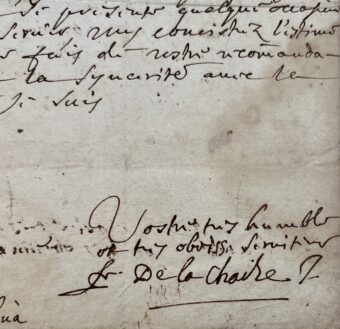 se presente quelque occasion
servir vous connoistrez l'estime
fais de vostre recomanda
la syncerité avec la
Je suis
Vostre tres humble
et tres obeiss. serviteur
fr De la Chaize J